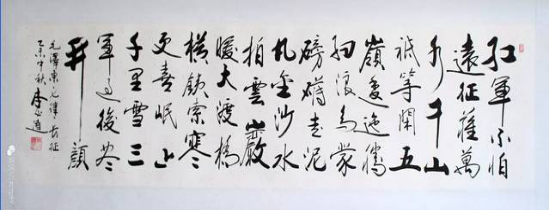 红軍不怕
遠征難萬
水千山
祗等閑五
嶺逶迤騰
細浪烏蒙
磅礴走泥
丸金沙水
拍雲巖
暖大渡橋
横鉄索寒
更喜岷山
千里雪三
軍过後尽
开顔
毛澤東七律長征
乙未中秋